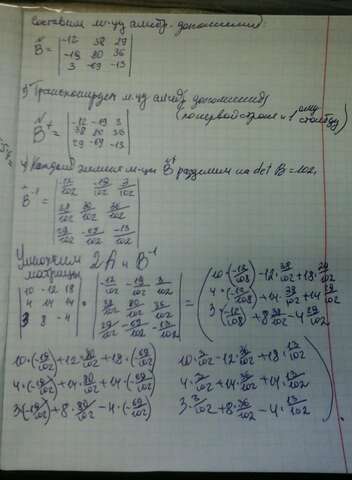 Составим м-цу алгебр. дополнений:
B̃ = | -12 38 29 |
| -19 80 36 |
| 3 -69 -13 |
3) Транспонируем м-цу алгебр. дополнений
(по первой строке и 1 ому столбцу)
B̃ᵗ = | -12 -19 3 |
| 38 80 36 |
| 29 -69 -13 |
4) Каждый элемент м-цы B̃ᵗ разделим на det B = 102,
B̃⁻¹ = | -12/102 -19/102 3/102 |
| 38/102 80/102 36/102 |
| 29/102 -69/102 -13/102 |
Умножим матрицы 2A и B⁻¹
| 10 -12 18 |
| 4 14 14 |
| 3 8 -4 |
· | -12/102 -19/102 3/102 |
| 38/102 80/102 36/102 |
| 29/102 -69/102 -13/102 | =
10·(-12/108) -12·38/102 +18·29/102
4·(-12/108) +14·38/102 +14·29/102
3·(-12/108) +8·38/102 -4·29/102
10·(-19/102) +12·80/102 +18·(-69/102) 10·3/102 -12·36/102 +18·13/102
4·(-19/102) +14·80/102 +14·(-69/102) 4·3/102 +14·36/102 +14·13/102
3·(-19/102) +8·80/102 -4·(-69/102) 3·3/102 +8·36/102 -4·13/102